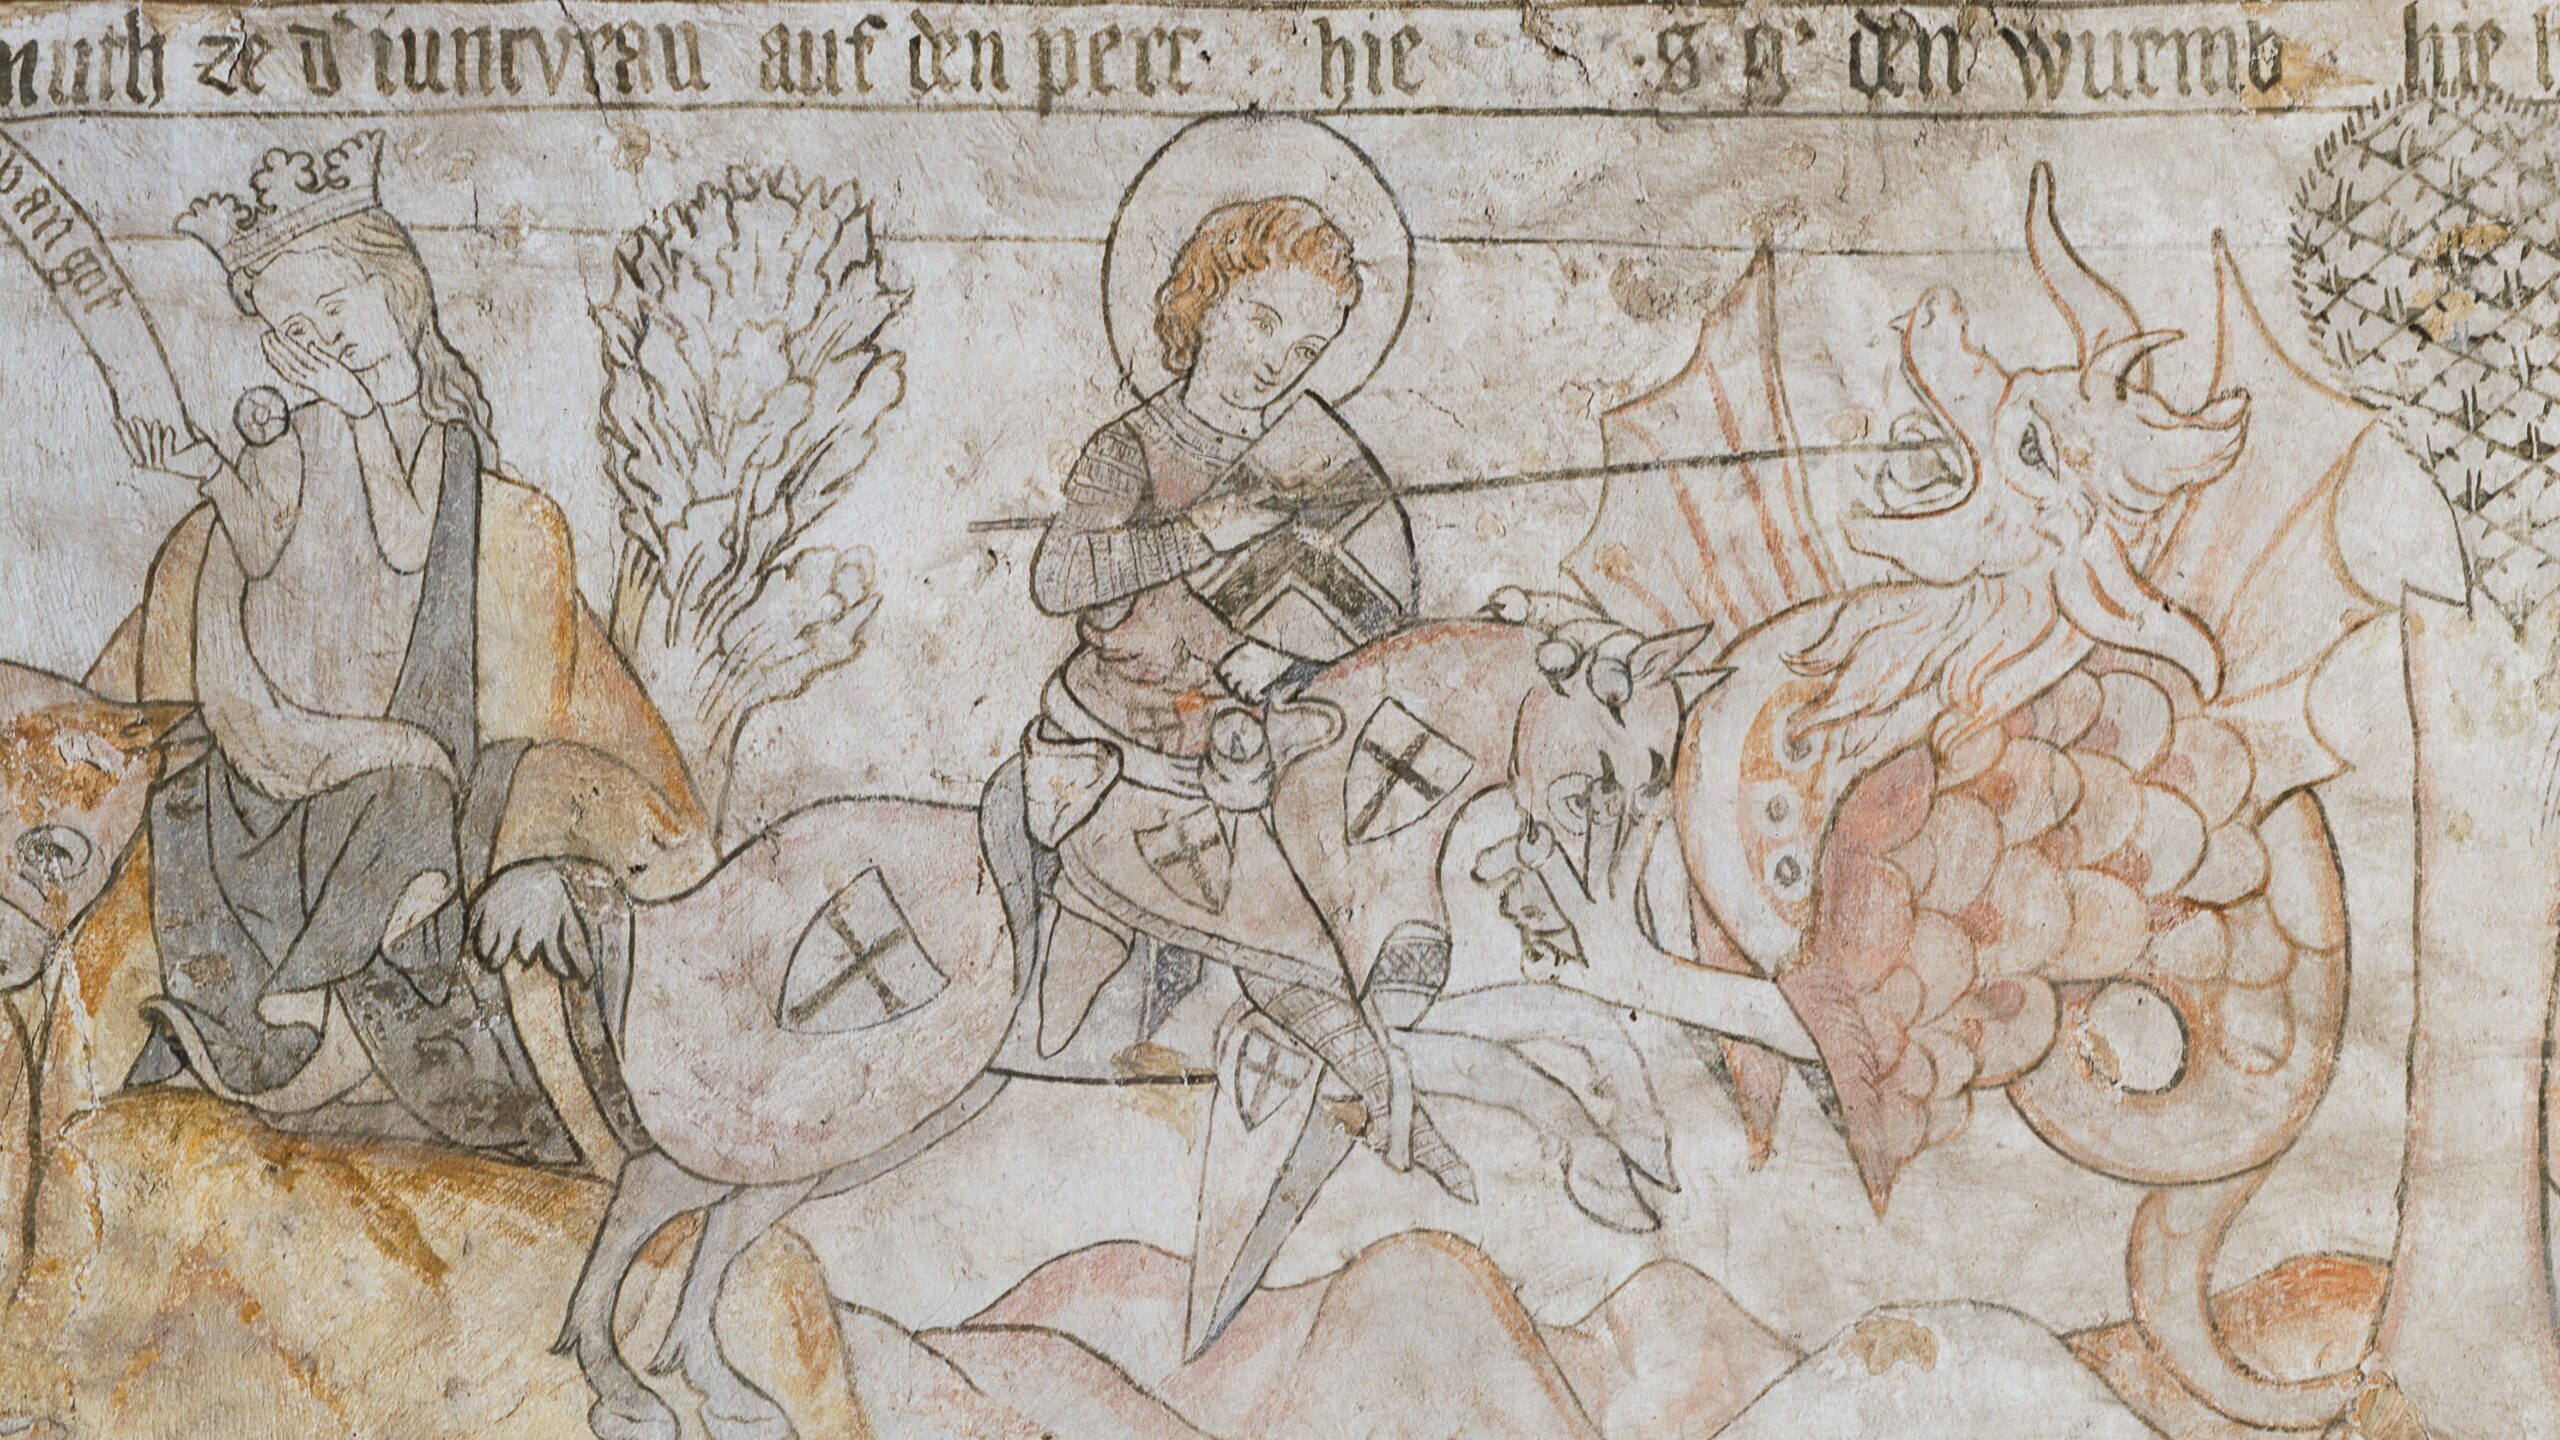 muth ze d' iuncvrau auf den perc · hie · S · g' den wurmb · hie
van got